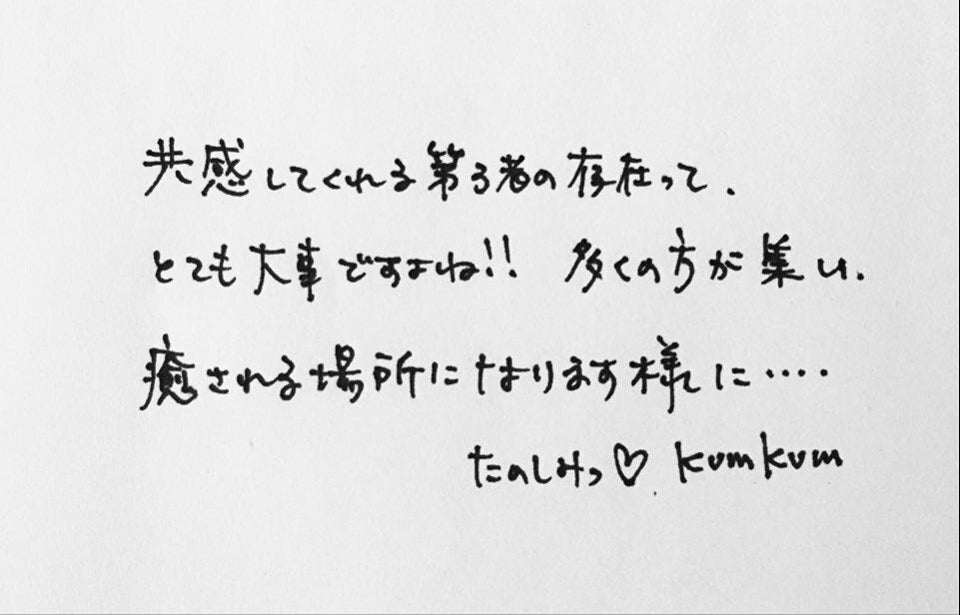 共感してくれる第3者の存在って、
とても大事ですよね!! 多くの方が集い、
癒される場所になります様に‥‥
たのしみっ♡ kumkum